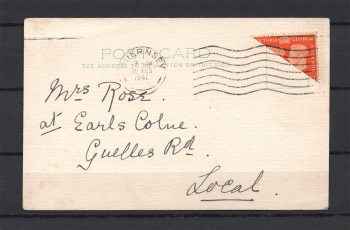 POST CARD
THE ADDRESS TO BE WRITTEN ON THIS SIDE
GUERNSEY
FEB
1941
Mrs Rose.
at Earls Colne.
Guelles Rd.
Local.